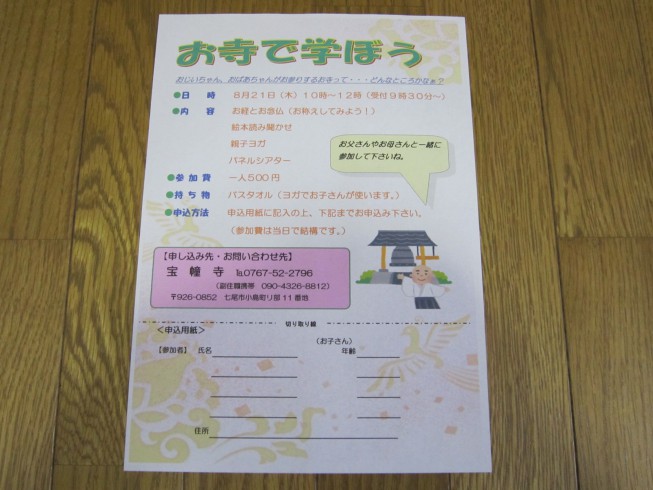 お寺で学ぼう
おじいちゃん、おばあちゃんがお参りするお寺って・・・どんなところかなぁ？
●日　時　８月２１日（木）１０時～１２時（受付９時３０分～）
●内　容　お経とお念仏（お称えしてみよう！）
絵本読み聞かせ
親子ヨガ
パネルシアター
お父さんやお母さんと一緒に
参加して下さいね。
●参 加 費　一人５００円
●持 ち 物　バスタオル（ヨガでお子さんが使います。）
●申込方法　申込用紙に記入の上、下記までお申込み下さい。
（参加費は当日で結構です。）
【申し込み先・お問い合わせ先】
宝 幢 寺　℡0767-52-2796
（副住職携帯　090-4326-8812）
〒926-0852　七尾市小島町リ部１１番地
切り取り線
＜申込用紙＞
（お子さん）
【参加者】　氏名　年齢
住所